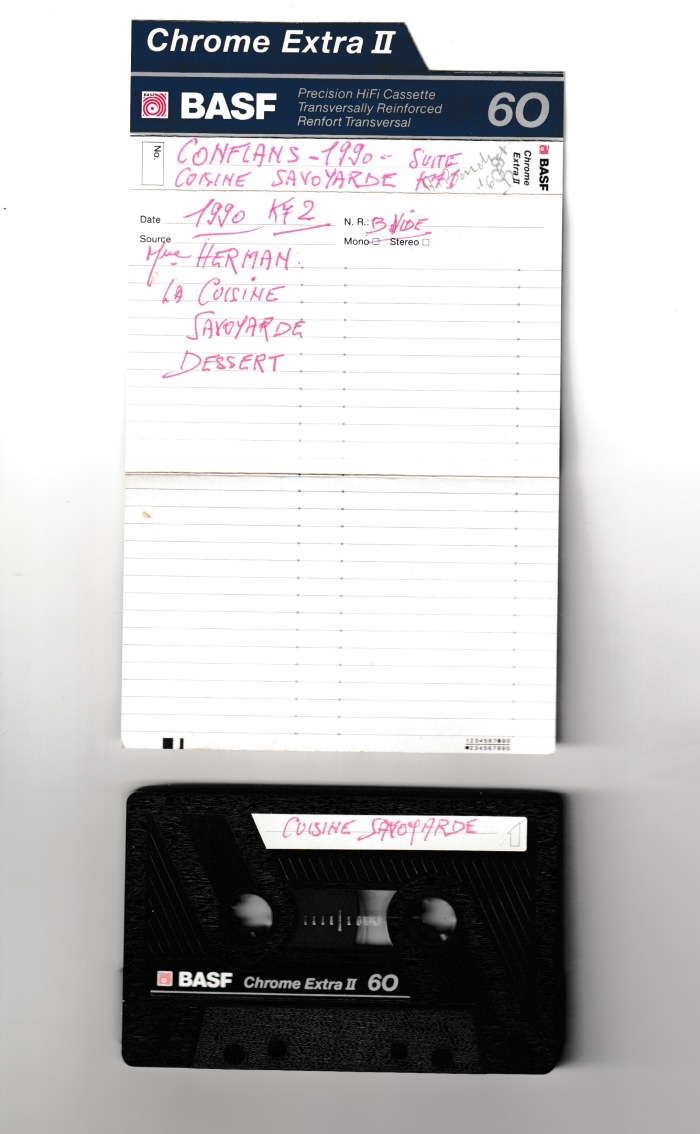 Chrome Extra II
BASF
Precision HiFi Cassette
Transversally Reinforced
Renfort Transversal
60
No.
CONFLANS - 1990 - SUITE
CUISINE SAVOYARDE K71
BASF
Chrome
Extra II
Date 1990 K7 2
N. R.: B. VIDE
Source
Mono Stereo
Mme HERMAN
LA CUISINE
SAVOYARDE
DESSERT
1234567890
1234567890
CUISINE SAVOYARDE
1
BASF Chrome Extra II 60